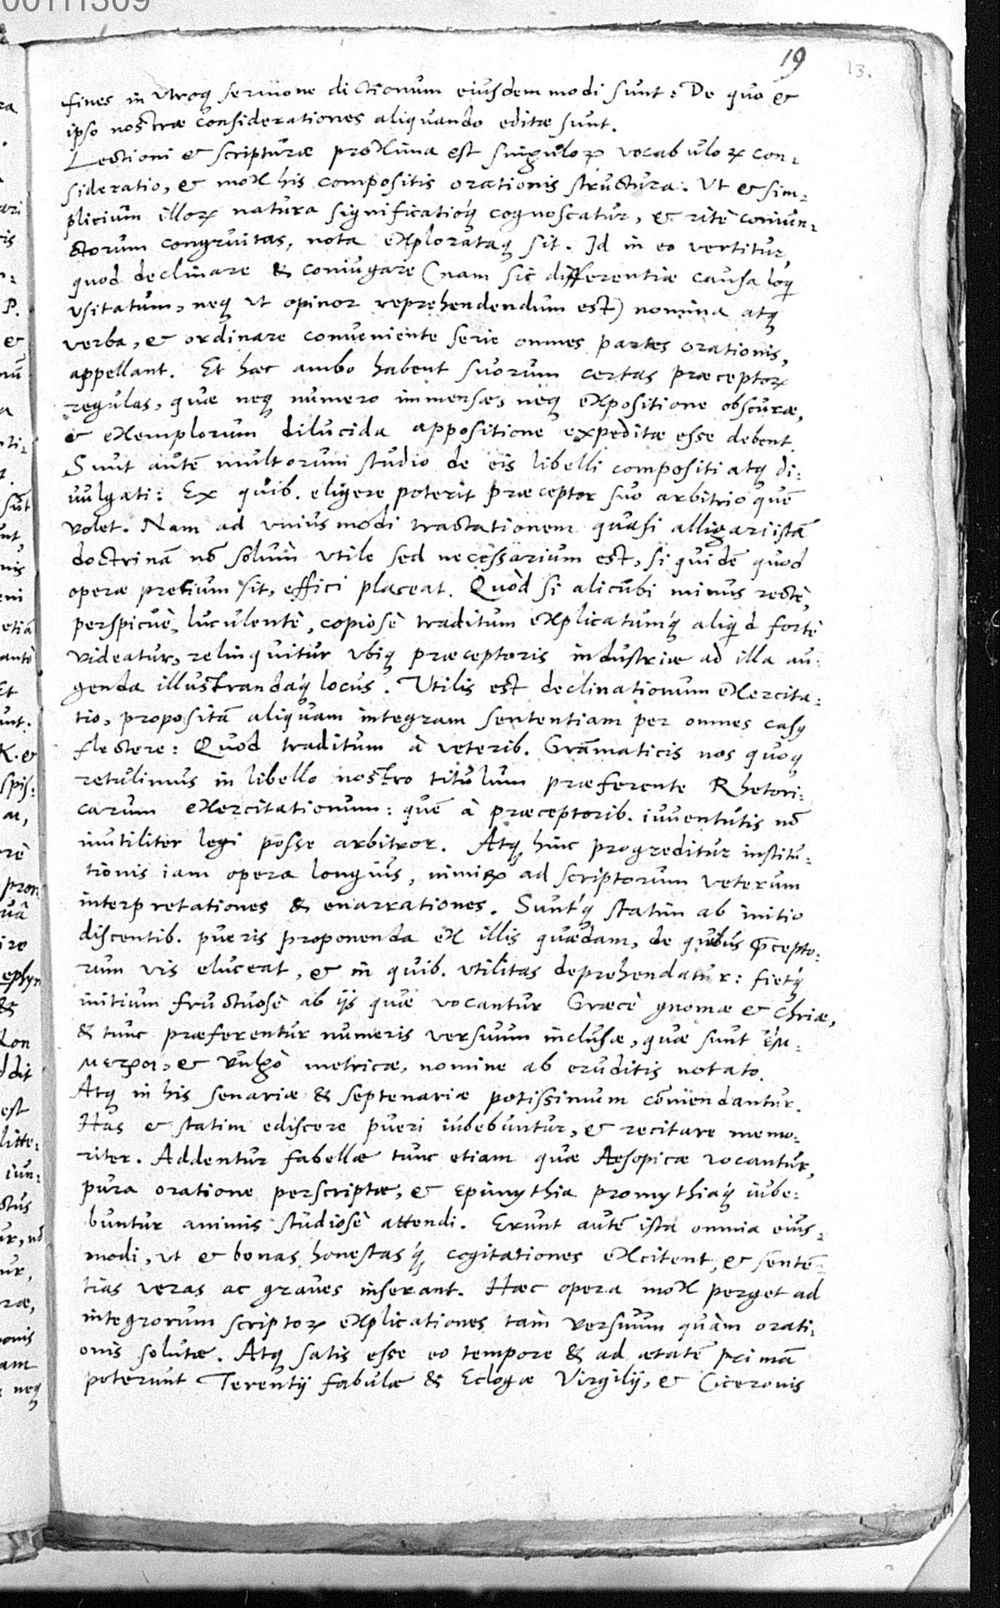 00111309
19
13.
fines in utroq; sermone dictionum eiusdem modi sunt: De quo &
ipso nostræ considerationes aliquando editæ sunt.
Lectioni & scripturæ proxima est singuloꝝ vocabuloꝝ con-
sideratio, & mox his compositis orationis structura. Ut & sim-
plicium illoꝝ natura significatioq́; cognoscatur, & ritè coniun-
ctorum congruitas, nota explorataq; sit. Id in eo vertitur,
quod declinare & coniugare (nam sic differentiæ causa loq̃
usitatum, neq; ut opinor reprehendendum est) nomina atq;
verba, & ordinare conveniente serie omnes partes orationis,
appellant. Et hæc ambo habent suorum certas præceptoꝝ
regulas, quæ neq; numero immensæ, neq; expositione obscuræ,
& exemplorum dilucida appositione expeditæ esse debent.
Sunt autē multorum studio de eis libelli compositi atq; di-
vulgati: Ex quib. eligere poterit præceptor suo arbitrio quē
volet. Nam ad unius modi tractationem quasi alligari istā
doctrinā nō solùm utile sed necessarium est, si quidē quod
operæ precium sit, effici placeat. Quòd si alicubi minus rectè,
perspicuè, luculentè, copiosè traditum explicatumq́; aliq̃d fortè
videatur, relinquitur ubiq; præceptoris industriæ ad illa au-
genda illustrandaq́; locus. Utilis est declinationum exercita-
tio, propositā aliquam integram sententiam per omnes casꝰ
flectere: Quod traditum à veterib. Grāmaticis nos quoq;
retulimus in libello nostro titulum præferente Rhetori-
carum exercitationum: quē à præceptorib. iuventutis nō
inutiliter legi posse arbitror. Atq; hinc progreditur institu-
tionis iam opera longius, nimiꝝ ad scriptorum veterum
interpretationes & enarrationes. Suntq́; statim ab initio
discentib. pueris proponenda ex illis quædam, de quibus p̄cepto-
rum vis eluceat, & in quib. utilitas deprehendatur: fietq́;
initium fructuosè ab ijs quæ vocantur Græcè gnomæ & chriæ,
& tunc præferentur numeris versuum inclusæ, quæ sunt ἔμ-
μετροι, & vulgò metricæ, nomine ab eruditis notato.
Atq; in his senariæ & septenariæ potissimum cōmendantur.
Has & statim ediscere pueri iubebuntur, & recitare memo-
riter. Addentur fabellæ tunc etiam quæ Aesopicæ vocantur,
pura oratione perscriptæ, & epimythia promythiaq́; iube-
buntur animis studiosè attendi. Erunt autē ista omnia eius-
modi, ut & bonas honestasq́; cogitationes excitent, & sentē-
tias veras ac graves inserant. Hæc opera mox perget ad
integrorum scriptoꝝ explicationes tàm versuum quàm orati-
onis solutæ. Atq; satis esse eo tempore & ad ætatē primā
poterunt Terentij fabulæ & Eclogæ Virgilij, & Ciceronis